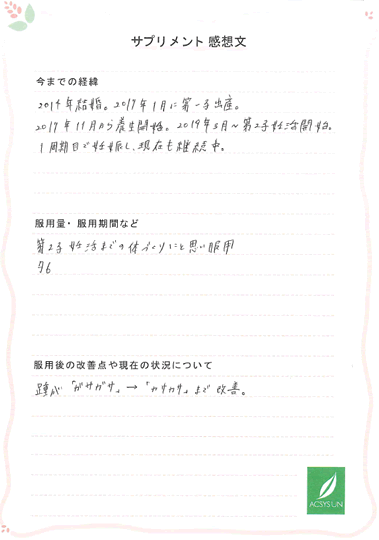 サプリメント 感想文
今までの経緯
2014年結婚。2017年1月に第一子出産。
2017年11月から養生開始。2019年3月〜第2子妊活開始。
1周期目で妊娠し、現在も継続中。
服用量・服用期間など
第2子妊活までの体づくりにと思い服用
夕6
服用後の改善点や現在の状況について
踵が「ガサガサ」→「カサカサ」まで改善。
ACSYSUN